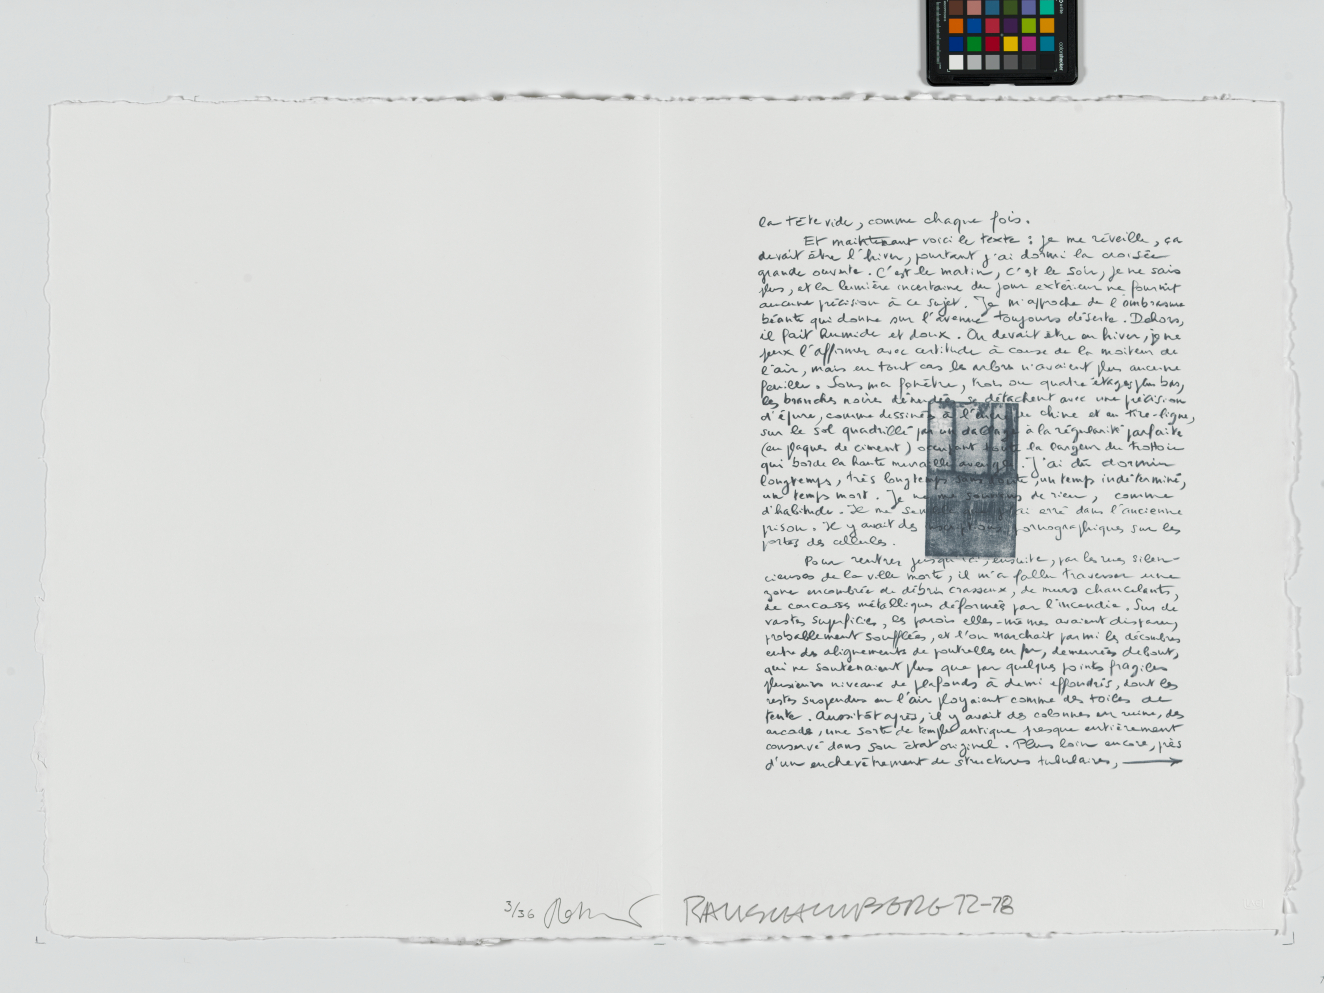 la tête vide, comme chaque fois.
Et maintenant voici le texte : je me réveille, ça
devait être l'hiver, pourtant j'ai dormi la croisée
grande ouverte. C'est le matin, c'est le soir, je ne sais
plus, et la lumière incertaine du jour extérieur ne fournit
aucune précision à ce sujet. Je m'approche de l'embrasure
béante qui donne sur l'avenue toujours déserte. Dehors,
il fait humide et doux. On devait être en hiver, je ne
peux l'affirmer avec certitude à cause de la moiteur de
l'air, mais en tout cas les arbres n'avaient plus aucune
feuille. Sous ma fenêtre, trois ou quatre étages plus bas,
les branches noires dénudées se détachent avec une précision
d'épure, comme dessinées à l'encre de chine et au tire-ligne,
sur le sol quadrillé par un dallage à la régularité parfaite
(en plaques de ciment) occupant toute la largeur du trottoir
qui borde la haute muraille aveugle. J'ai dû dormir
longtemps, très longtemps sans doute, un temps indéterminé,
un temps mort. Je ne me souviens de rien, comme
d'habitude. Il me semble que j'ai erré dans l'ancienne
prison. Il y avait des inscriptions pornographiques sur les
portes des cellules.
Pour rentrer jusqu'ici, ensuite, par les rues silen-
cieuses de la ville morte, il m'a fallu traverser une
zone encombrée de débris crasseux, de murs chancelants,
de carcasses métalliques déformées par l'incendie. Sur de
vastes superficies, les parois elles-mêmes avaient disparu,
probablement soufflées, et l'on marchait parmi les décombres
entre des alignements de poutrelles en fer, demeurées debout,
qui ne soutenaient plus que par quelques points fragiles
plusieurs niveaux de plafonds à demi effondrés, dont les
restes suspendus en l'air ployaient comme des toiles de
tente. Aussitôt après, il y avait des colonnes en ruine, des
arcades, une sorte de temple antique presque entièrement
conservé dans son état originel. Plus loin encore, près
d'un enchevêtrement de structures tubulaires, →
3/36 RAUSCHENBERG 72-78